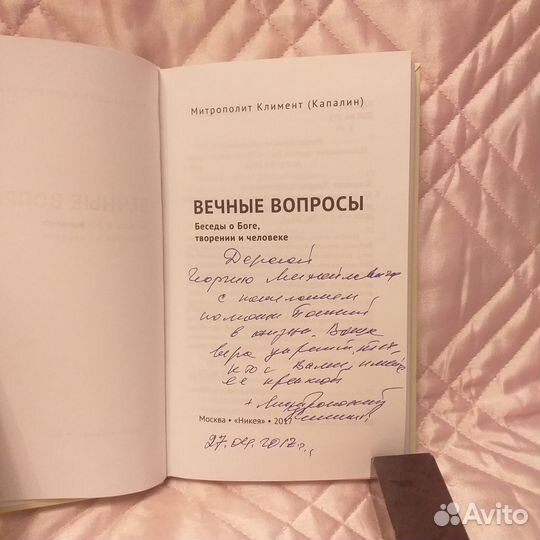 Митрополит Климент (Капалин)
ВЕЧНЫЕ ВОПРОСЫ
Беседы о Боге,
творении и человеке
Дорогой
Георгию Михайловичу
с пожеланием
помощи Божией
в жизни. Ваша
вера укрепит тех,
кто с Вами, имейте
ее крепкой
+ Митрополит
Климент
Москва • «Никея» • 2017
27.09.2017 г.
Avito